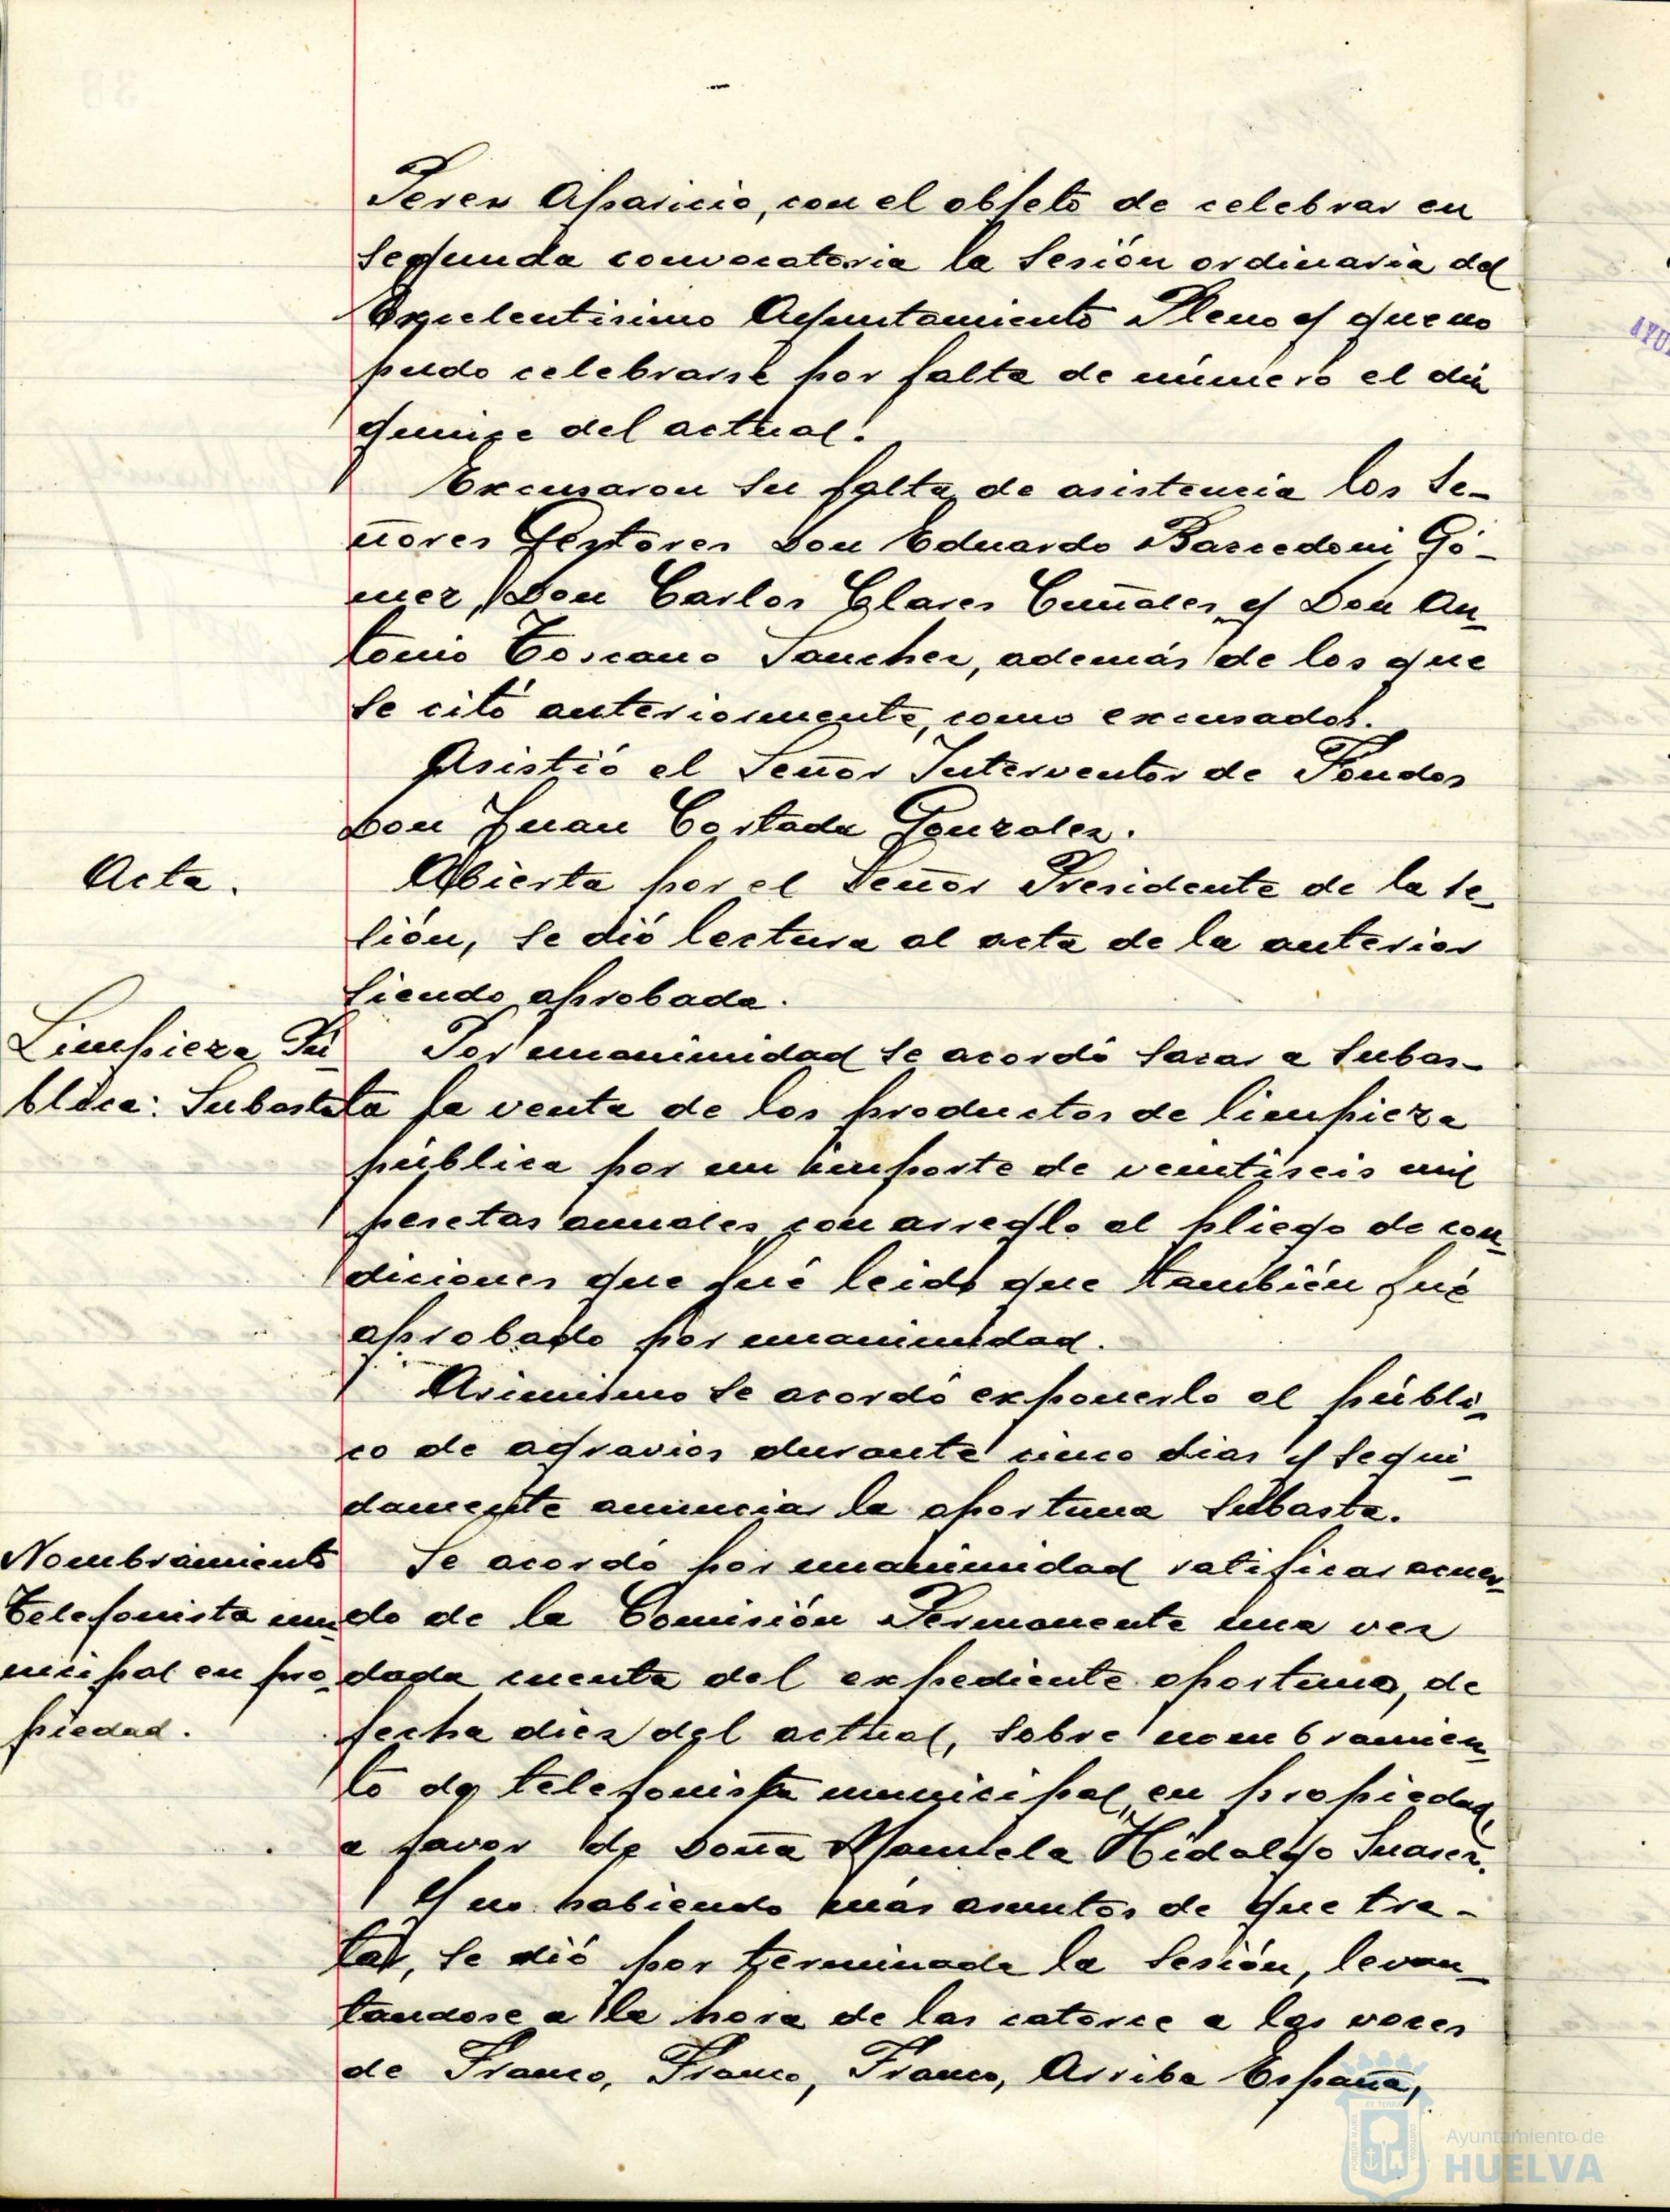 Perez Aparicio, con el objeto de celebrar en
segunda convocatoria la sesión ordinaria del
Excelentisimo Ayuntamiento Pleno y que no
pudo celebrarse por falta de número el dia
quince del actual.
Excusaron su falta de asistencia los Se-
ñores Gestores Don Eduardo Barcedoni Gó-
mez, Don Carlos Clares Cuñales y Don An-
tonio Toscano Sanchez, además de los que
se citó anteriormente, como excusados.
Asistió el Señor Interventor de Fondos
Don Juan Cortada Gonzalez.
Acta.
Abierta por el Señor Presidente de la se-
sión, se dió lectura al acta de la anterior
siendo aprobada.
Limpieza Pú-
blica: Subasta
Por unanimidad se acordó sacar a subas-
ta la venta de los productos de limpieza
pública por un importe de veintiseis mil
pesetas anuales con arreglo al pliego de con-
diciones que fué leido que también fué
aprobado por unanimidad.
Asimismo se acordó exponerlo al públi-
co de agravios durante cinco dias y segui-
damente anunciar la oportuna subasta.
Nombramiento
telefonista mu-
nicipal en pro-
piedad.
Se acordó por unanimidad ratificar acuer-
do de la Comisión Permanente una vez
dada cuenta del expediente oportuno, de
fecha diez del actual, sobre nombramien-
to de telefonista municipal, en propiedad,
a favor de Doña Manuela Hidalgo Suarez.
Y no habiendo más asuntos de que tra-
tar, se dió por terminada la sesión, levan-
tandose a la hora de las catorce a las voces
de Franco, Franco, Franco, Arriba España,
Ayuntamiento de
HUELVA